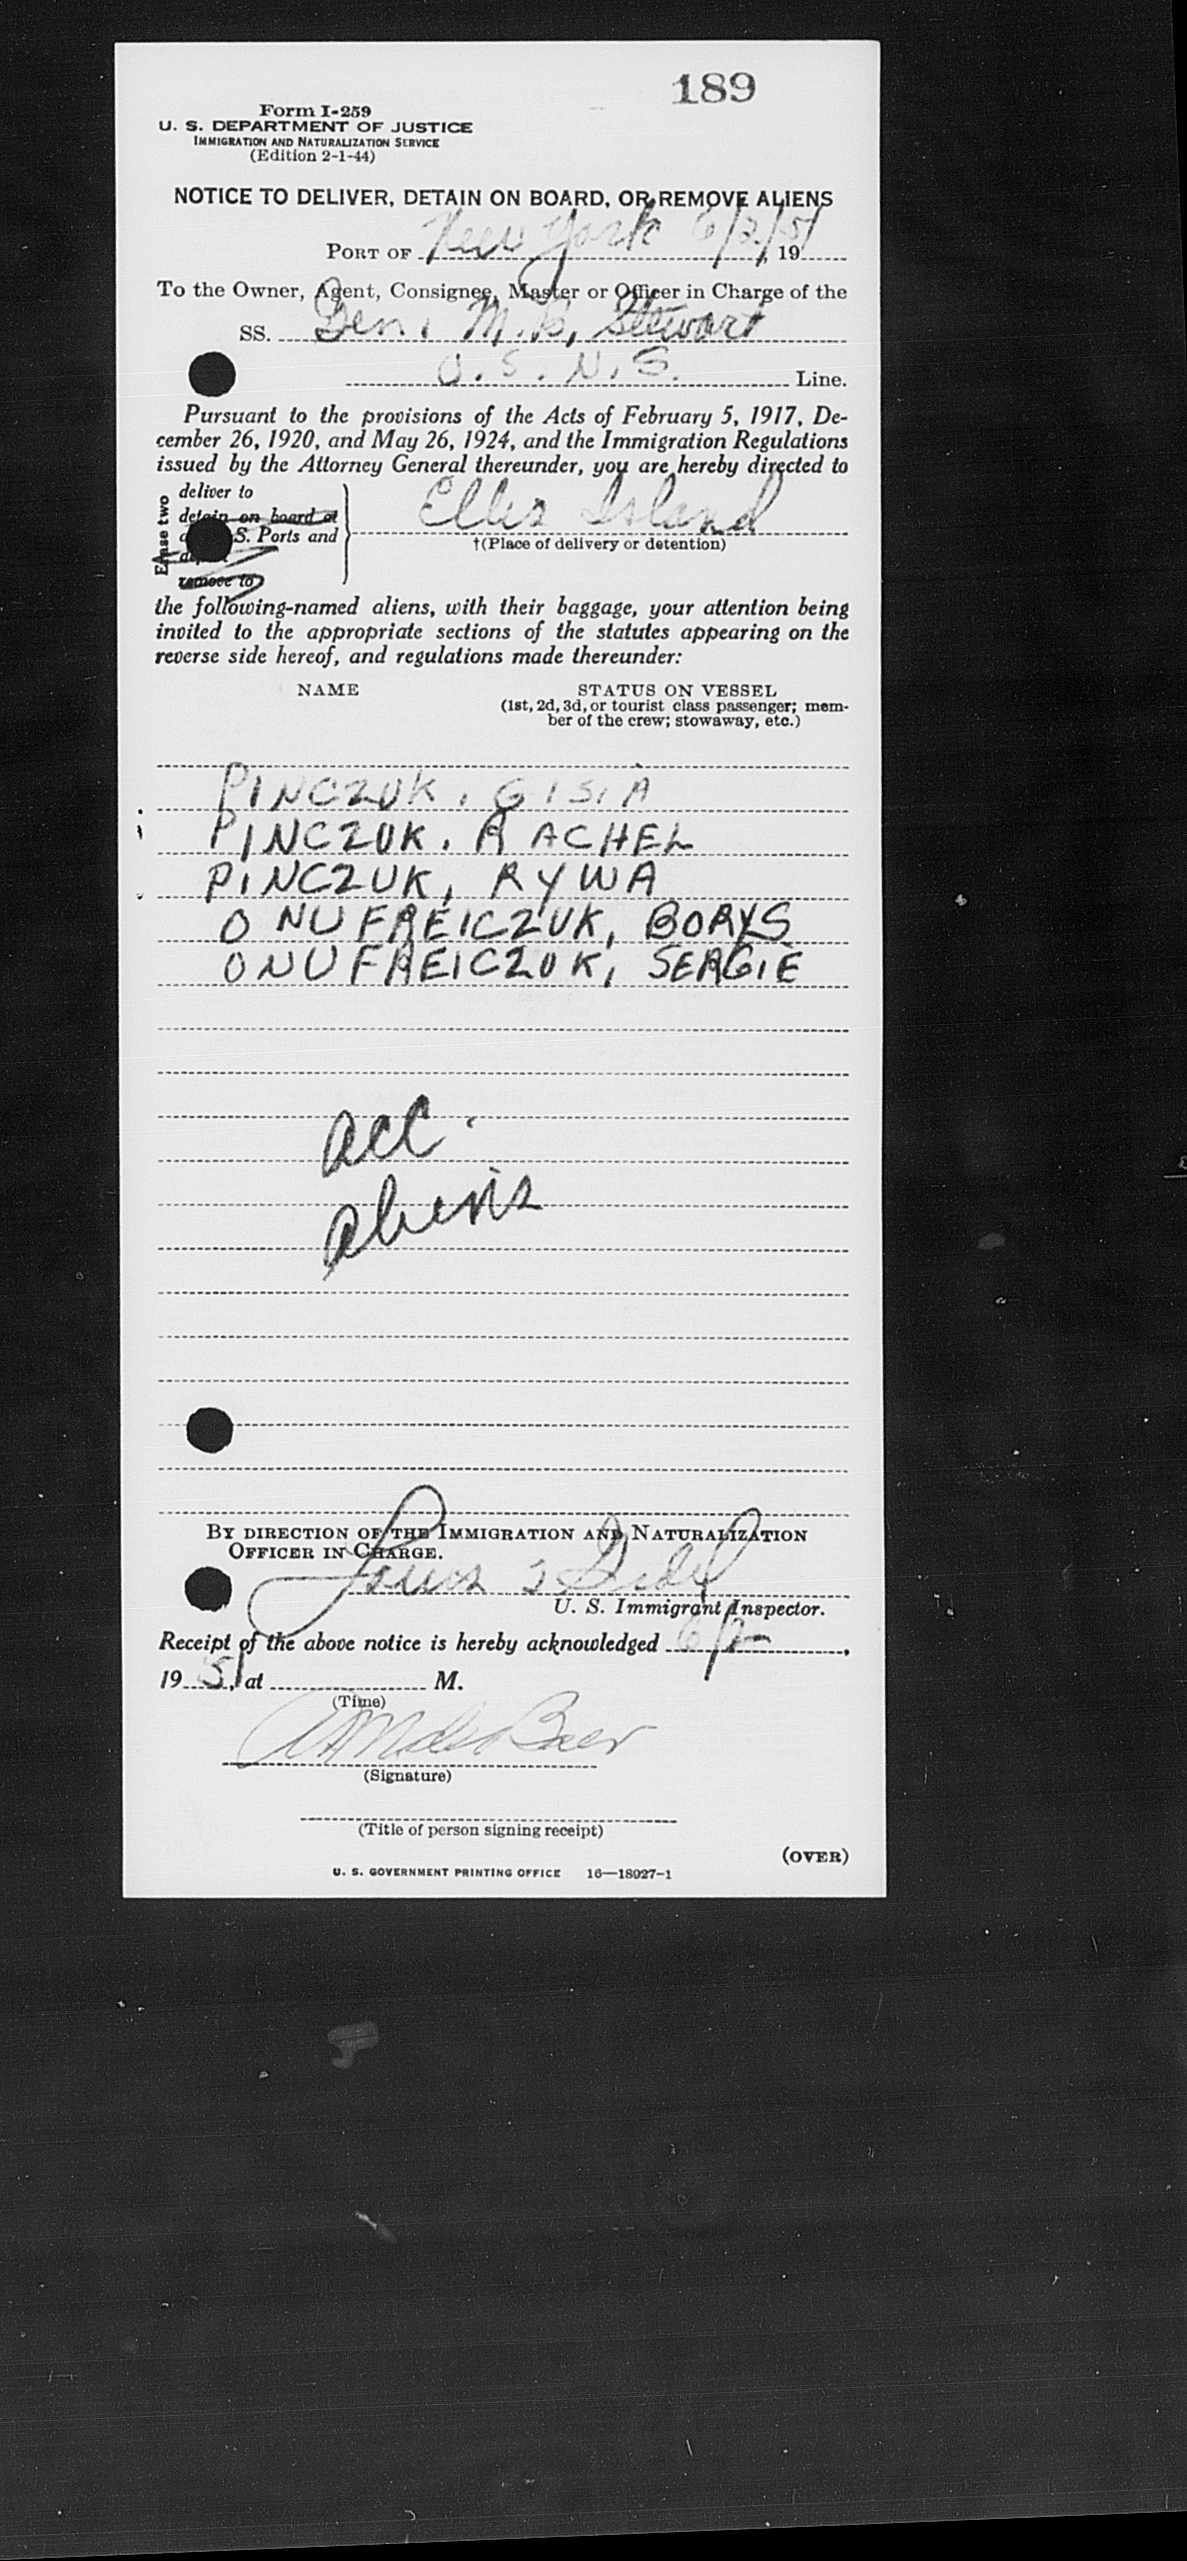 189
Form I-259
U. S. DEPARTMENT OF JUSTICE
IMMIGRATION AND NATURALIZATION SERVICE
(Edition 2-1-44)
NOTICE TO DELIVER, DETAIN ON BOARD, OR REMOVE ALIENS
PORT OF New York 6/2/51, 19
To the Owner, Agent, Consignee, Master or Officer in Charge of the
SS. Gen. M. B. Stewart
U. S. N. S. Line.
Pursuant to the provisions of the Acts of February 5, 1917, De-
cember 26, 1920, and May 26, 1924, and the Immigration Regulations
issued by the Attorney General thereunder, you are hereby directed to
Erase two
deliver to
detain on board at
S. Ports and
remove to
Ellis Island
†(Place of delivery or detention)
the following-named aliens, with their baggage, your attention being
invited to the appropriate sections of the statutes appearing on the
reverse side hereof, and regulations made thereunder:
NAME STATUS ON VESSEL
(1st, 2d, 3d, or tourist class passenger; mem-
ber of the crew; stowaway, etc.)
PINCZUK, GISIA
PINCZUK, RACHEL
PINCZUK, RYWA
ONUFREICZUK, BORYS
ONUFREICZUK, SERGIE
acc.
aliens
BY DIRECTION OF THE IMMIGRATION AND NATURALIZATION
OFFICER IN CHARGE.
Louis
U. S. Immigrant Inspector.
Receipt of the above notice is hereby acknowledged 6/2,
19 51, at M.
(Time)
(Signature)
(Title of person signing receipt)
(OVER)
U. S. GOVERNMENT PRINTING OFFICE 16—18027-1